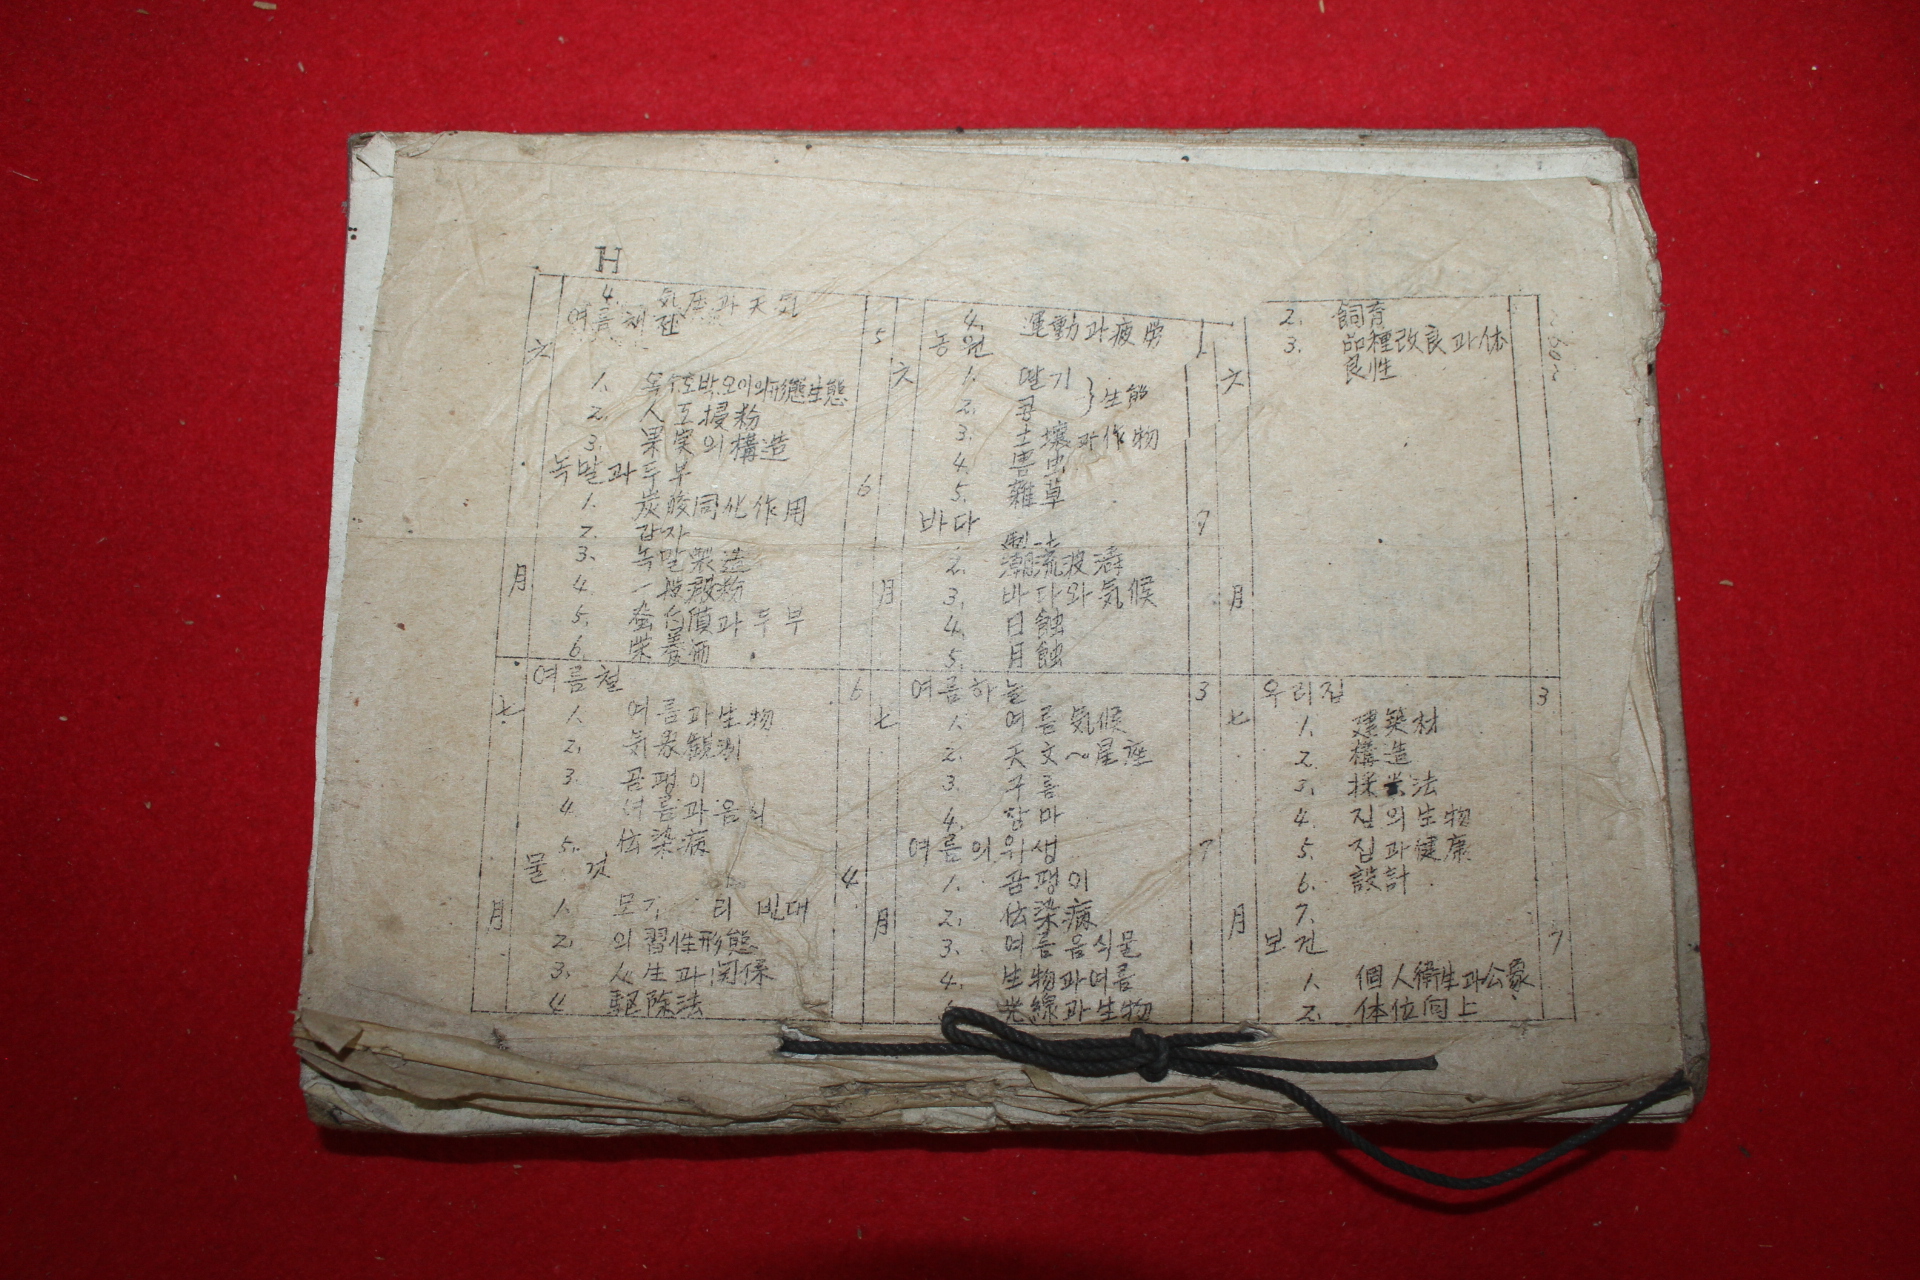 H
六月
4. 気圧과天気
여름채전 5
1. 옥수호박오이의形態生態
2. 人工授粉
3. 果実의構造
녹말과두부 6
1. 炭酸同化作用
2. 감자
3. 녹말製造
4. 一般澱粉
5. 蛋白質과두부
6. 栄養価
七月
여름철 6
1. 여름과生物
2. 気象観測
3. 곰팽이
4. 여름과음식
5. 伝染病
물것 4
1. 모기 리 빈대
2. 의習性形態
3. 人生과関係
4 駆除法
六月
4. 運動과疲労
농원
1. 딸기
2. 콩 } 生態
3. 土壌과作物
4. 害虫
5. 雑草
바다 7
2. 潮流波濤
3. 바다와気候
4. 日蝕
5. 月蝕
七月
여름하늘 3
1. 여름気候
2. 天文～星座
3. 구름
4. 장마
여름의위생 7
1. 곰팽이
2. 伝染病
3. 여름음식물
4. 生物과여름
光線과生物
六月
2. 飼育
3. 品種改良과体
良性
七月
우리집 3
1. 建築材
2. 構造
3. 採光法
4. 집의生物
5. 집과健康
6. 設計
7.
보건 7
1. 個人衛生과公衆
2. 体位向上